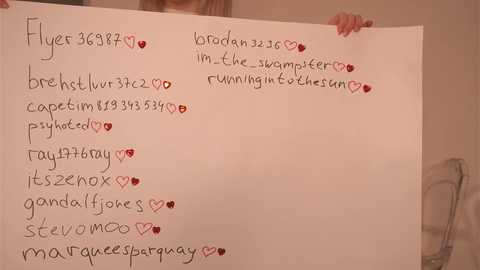 Flyer36987
brehstluvr37c2
capetim819343534
psyhoted
ray1776ray
itszenox
gandalfjones
stevomoo
marqueesparquay
brodan3236
im_the_swampster
runningintothesun